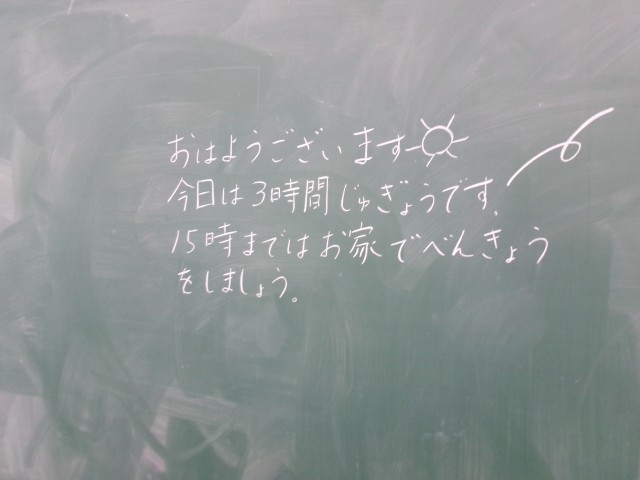 おはようございます
今日は3時間じゅぎょうです.
15時まではお家でべんきょう
をしましょう。